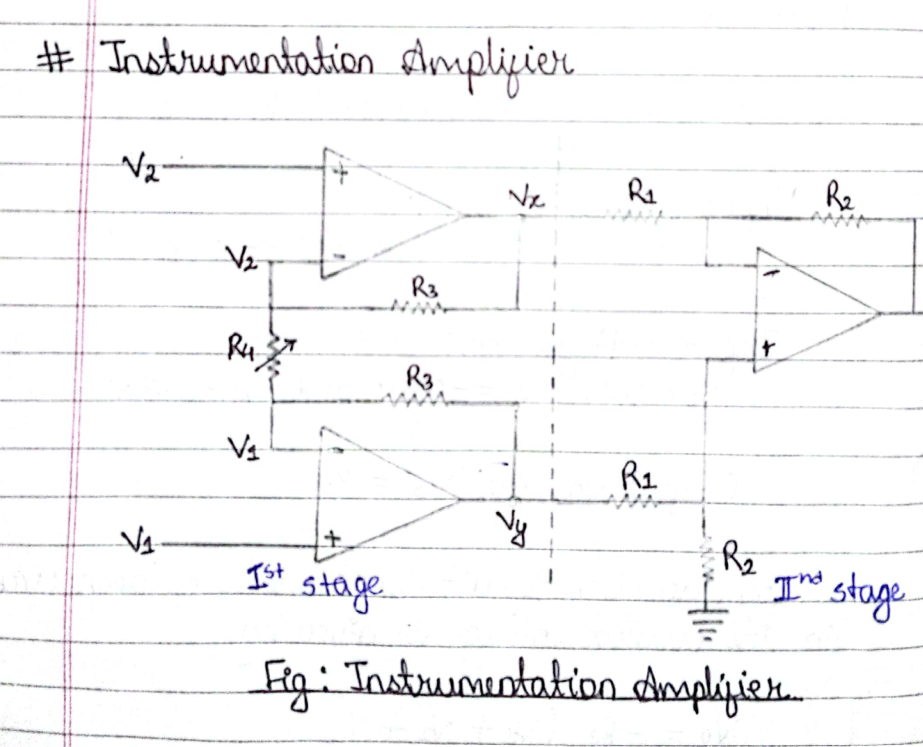 # Instrumentation Amplifier
V2
+
Vx
R1
R2
V2
-
-
R3
R4
+
R3
V1
-
R1
Vy
V1
+
R2
Ist stage
IInd stage
Fig: Instrumentation Amplifier